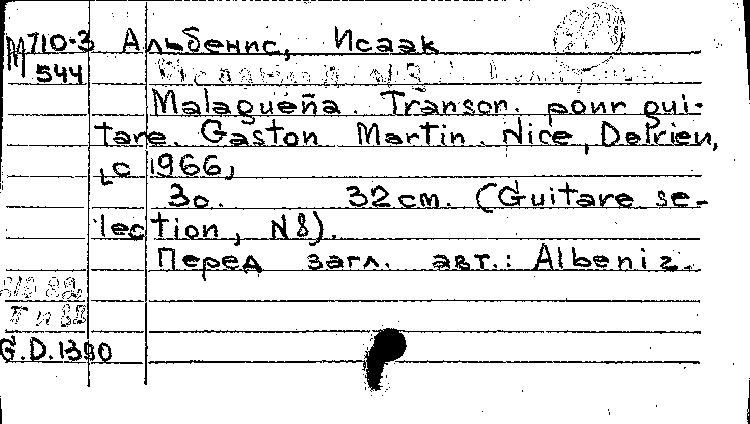 М 710-3 Альбенис, Исаак
544
Malagueña. Transcr. pour gui-
tare. Gaston Martin. Nice, Delrieu,
c 1966,
3с. 32 cm. (Guitare se-
lection, N8).
Перед загл. авт.: Albeniz.
G.D.1390